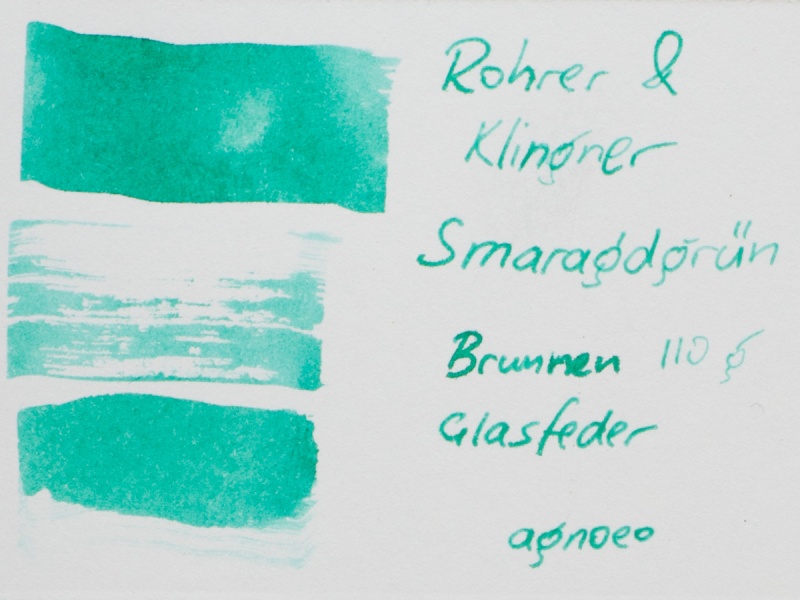 Rohrer &
Klingner
Smaragdgrün
Brunnen 110 g
Glasfeder
agnoeo